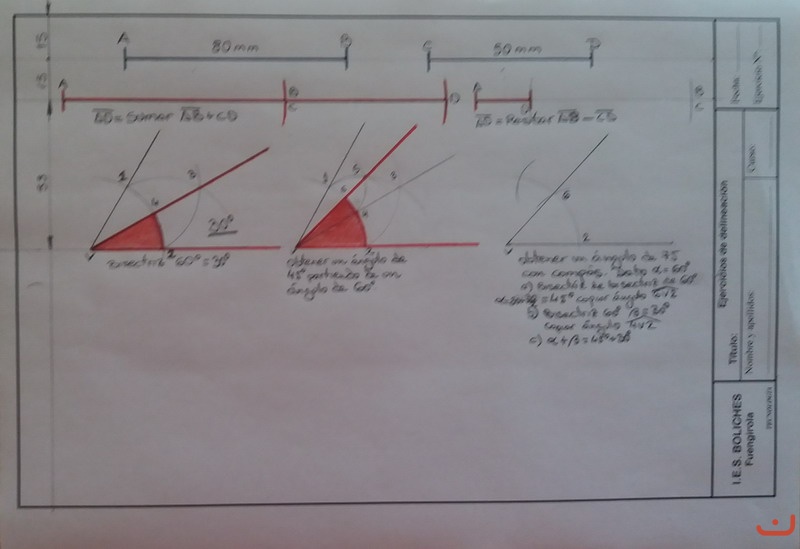 A 80 mm B
C 50 mm D
15
15
A B C D
AD = Sumar AB + CD
A D
AD = Restar AB - CD
C B
35
1 3 4 2 V
30°
Bisectriz 60° = 30°
1 5 3 6 4 2 V
obtener un ángulo de
45° partiendo de un
ángulo de 60°
6 2 V
obtener un ángulo de 75
con compás. Datos α = 60°
a) Bisectriz de bisectriz de 60
= 45° copiar ángulo 6V2
b) Bisectriz 60° β = 30°
copiar ángulo 4V2
c) α + β = 45° + 30°
Fecha:
Ejercicio Nº:
Ejercicios de delineación
Curso:
Título:
Nombre y apellidos:
I.E.S. BOLICHES
Fuengirola
TECNOLOGÍA